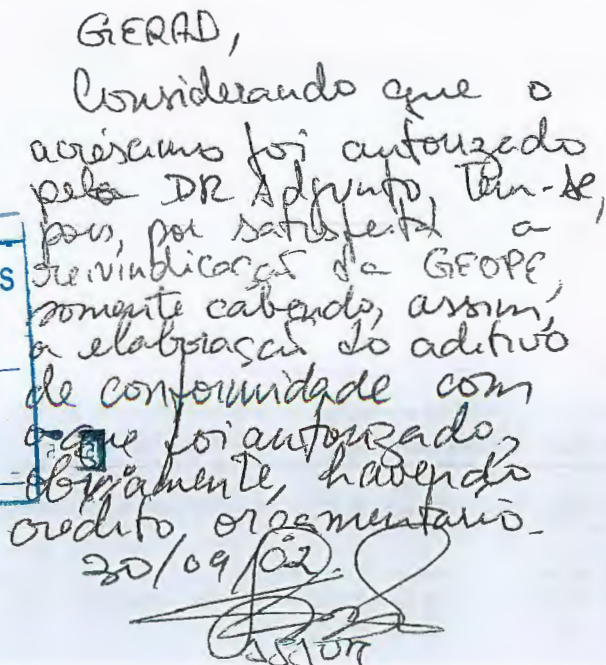 GERAD,
Considerando que o
acréscimo foi autorizado
pelo DR Adjunto, tem-se,
pois, por satisfeita a
reivindicação da GEOPE,
somente cabendo, assim,
a elaboração do aditivo
de conformidade com
o que foi autorizado,
obviamente, havendo
crédito orçamentário.
30/09/02.
ASJUR
S